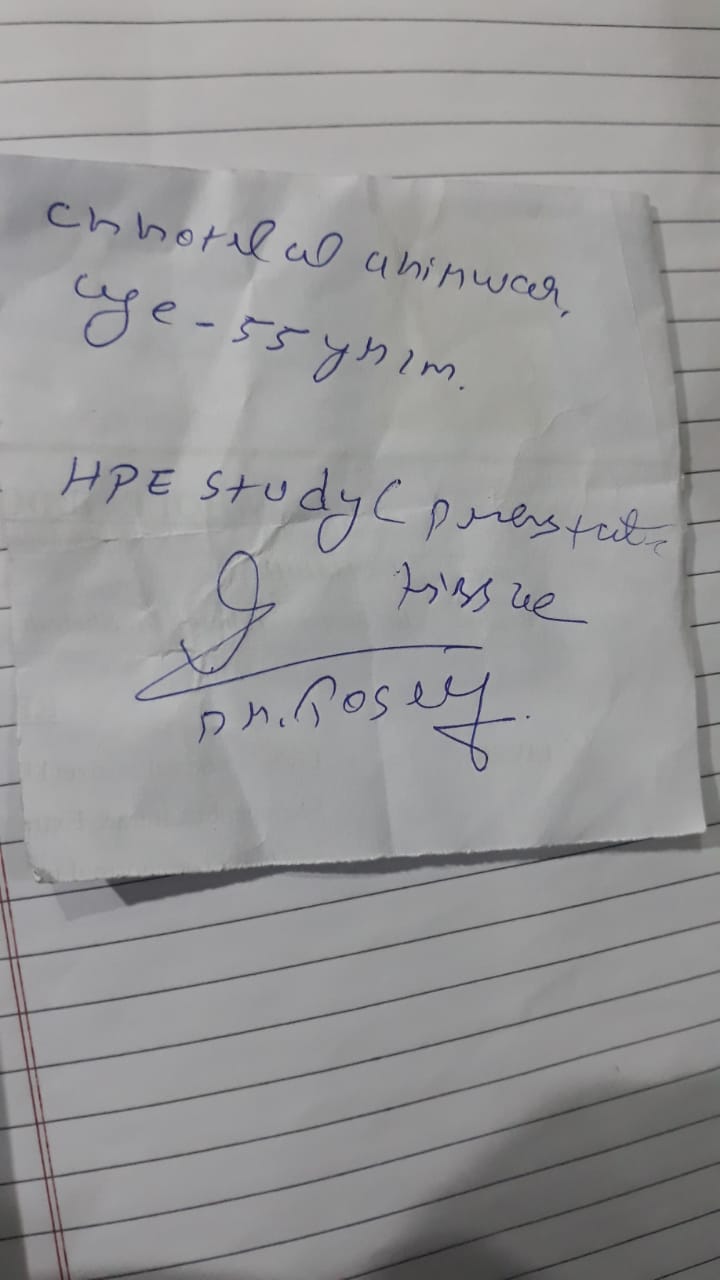 Chhotelal ahirwar,
age - 55 yr/m.
HPE study ( prostate
tissue
Dr. Rosey